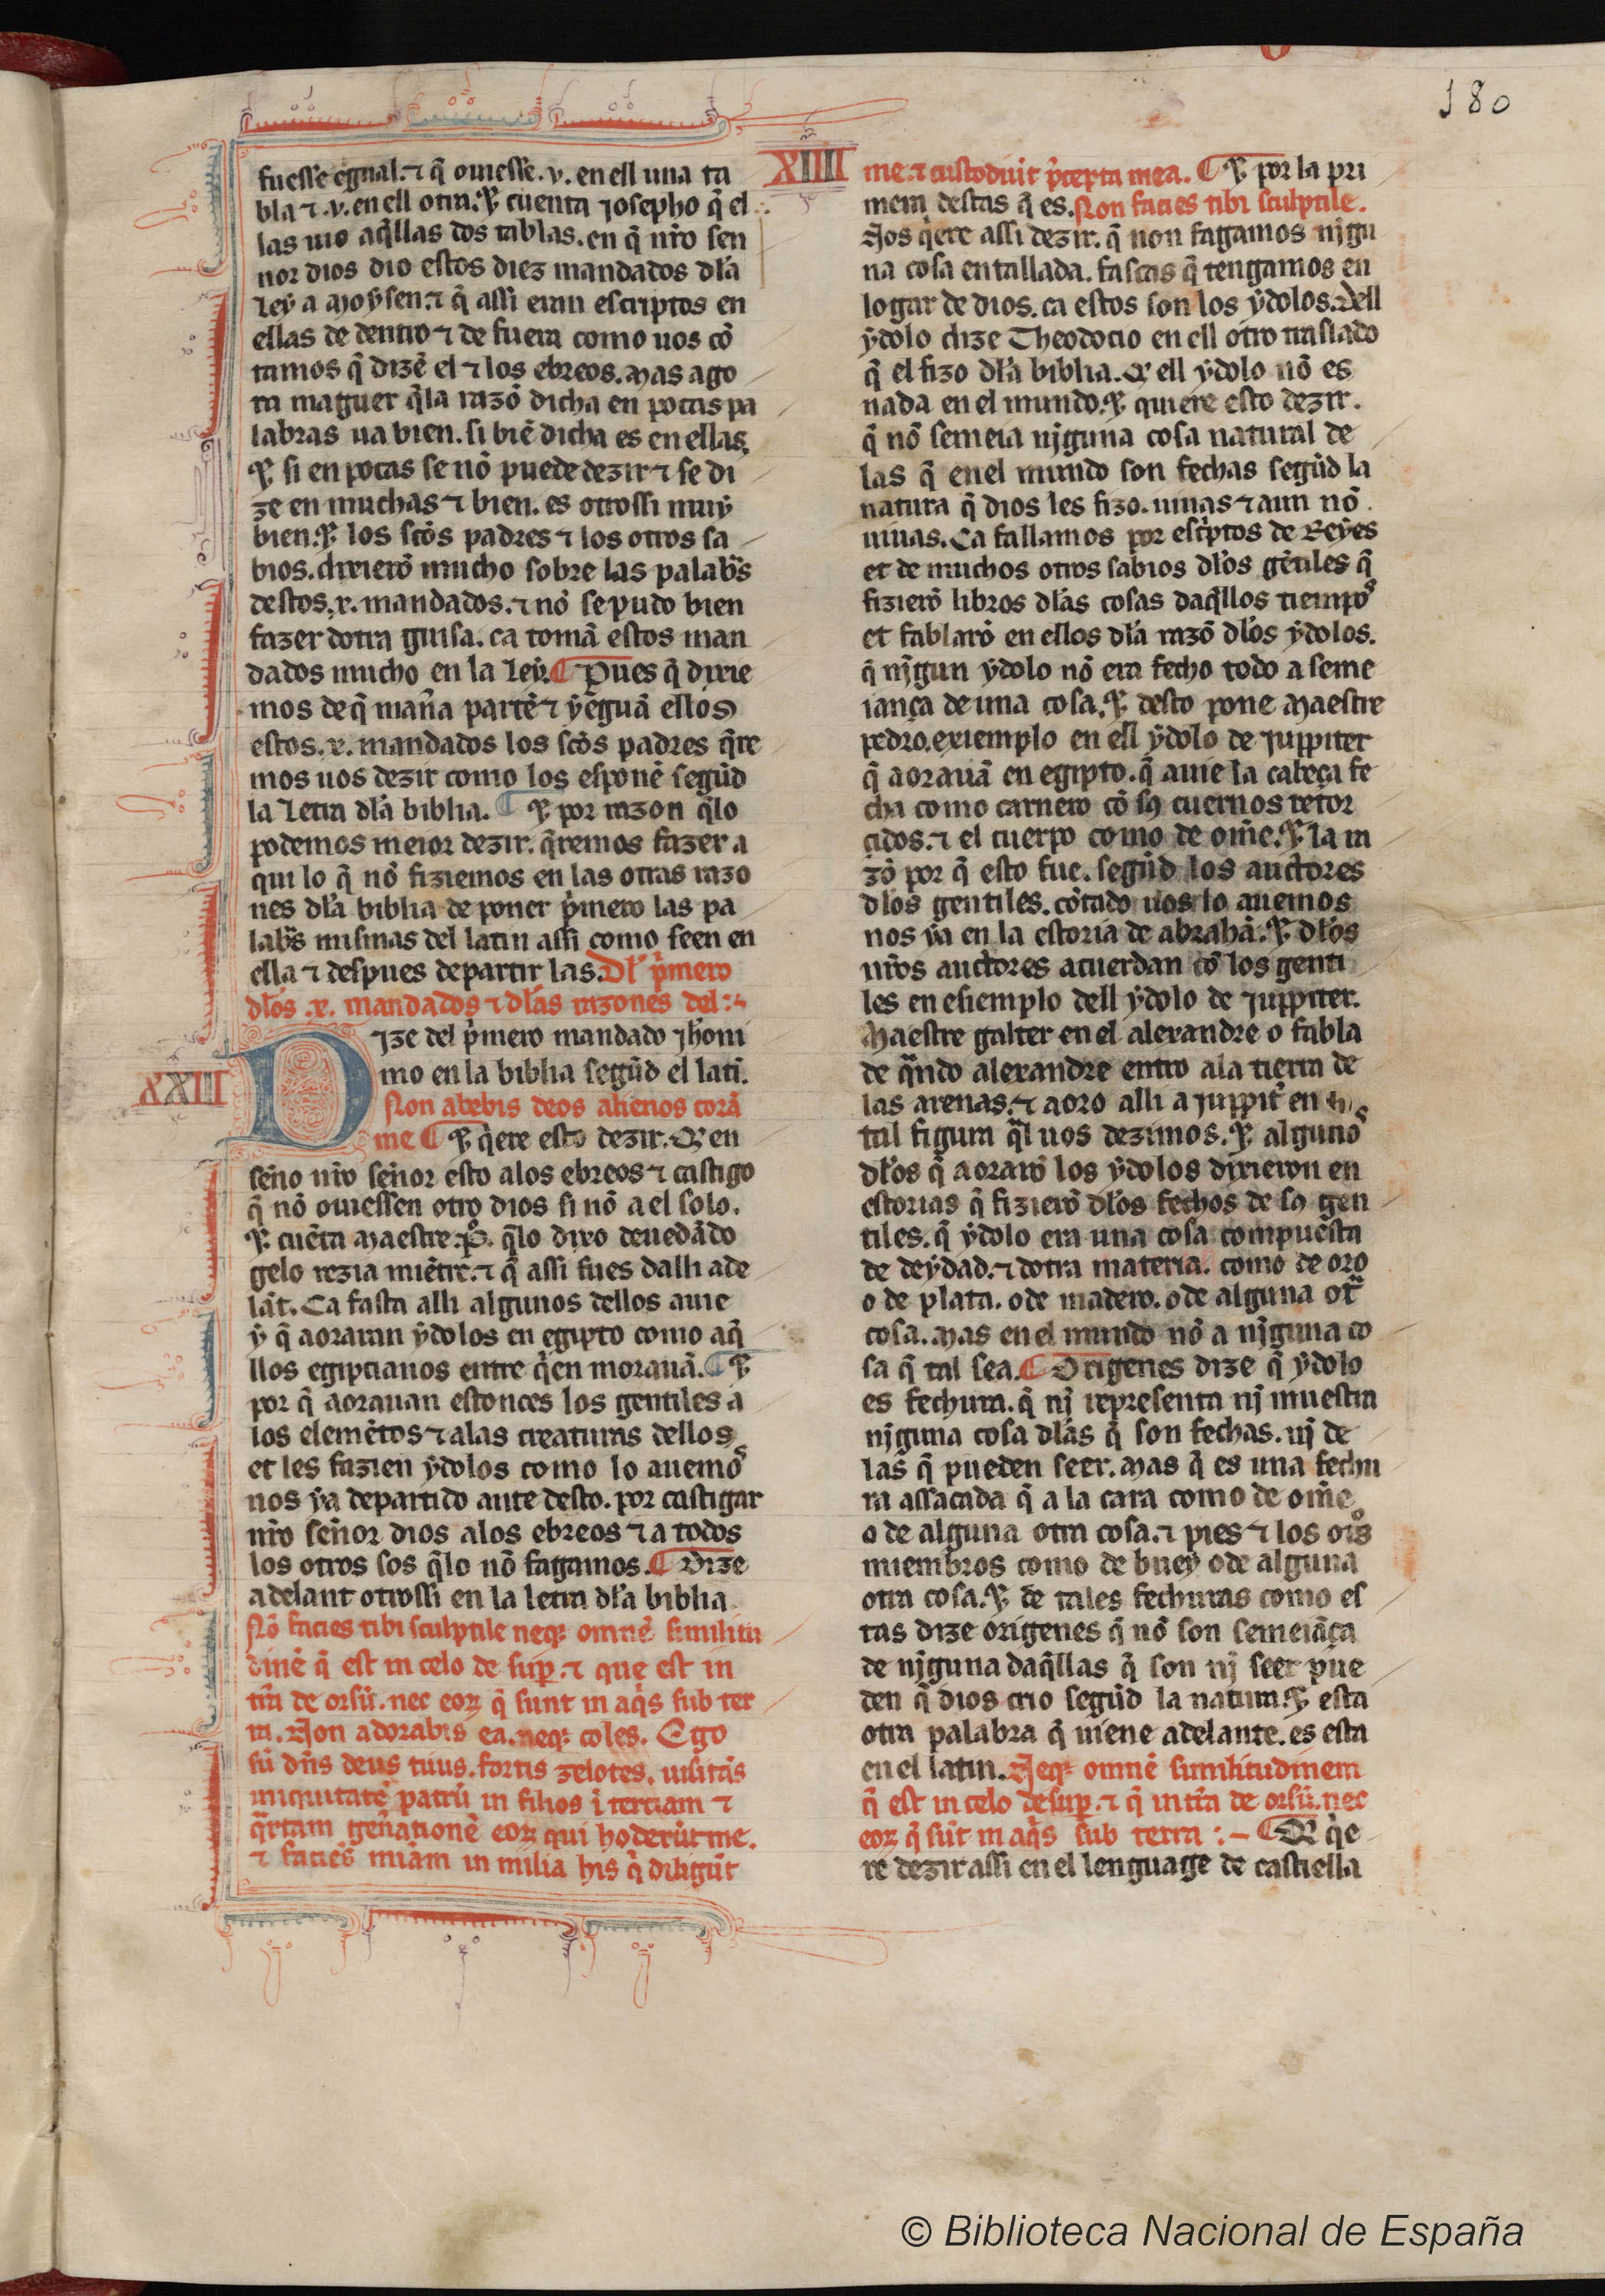 180
fuesse egual. ⁊ q̃ ouiesse .v. en ell una ta
bla ⁊ .v. en ell otra. ⁊ cuenta josepho q̃ el
las uio aq̃llas dos tablas. en q̃ nr̃o sen
nor dios dio estos diez mandados dl̃a
ley a moysen. ⁊ q̃ assi eran escriptos en
ellas de dentro ⁊ de fuera como uos cõ
tamos q̃ dizẽ el ⁊ los ebreos. Mas ago
ra maguer q̃ la razõ dicha en pocas pa
labras ua bien. si biẽ dicha es en ellas.
⁊ si en pocas se nõ puede dezir ⁊ se di
ze en muchas ⁊ bien. es otrossi muy
bien. ⁊ los sc̃os padres ⁊ los otros sa
bios. dixierõ mucho sobre las palab̃s
destos .x. mandados. ⁊ nõ se pudo bien
fazer dotra guisa. ca tomã estos man
dados mucho en la ley. ¶ Pues q̃ dixie
mos de q̃ maña partẽ ⁊ yeguã ellos
estos .x. mandados los sc̃os padres q̃re
mos uos dezir como los esponẽ segũd
la letra dl̃a biblia. ¶ ⁊ por razon q̃ lo
podemos meior dezir. q̃remos fazer a
qui lo q̃ nõ fiziemos en las otras razo
nes dl̃a biblia de poner p̃mero las pa
lab̃s mismas del latin assi como seen en
ella ⁊ despues departir las. Dl̃ p̃mero
dl̃os .x. mandados ⁊ dl̃as razones del :~
XXIII
Dize del p̃mero mandado jh̃oni
mo en la biblia segũd el latĩ.
Non abebis deos alienos corã
me ¶ ⁊ q̃ere esto dezir. Q̃ en
seño nr̃o señor esto a los ebreos ⁊ castigo
q̃ nõ ouiessen otro dios si nõ a el solo.
⁊ cuẽta maestre .P̊. q̃ lo dixo deuedãdo
gelo rezia miẽtre. ⁊ q̃ assi fues dalli ade
lãt. Ca fasta alli algunos dellos auie
y q̃ aorauan ydolos en egipto como aq̃
llos egiptianos entre q̃en morauã. ¶ ⁊
por q̃ aorauan estonces los gentiles a
los elemẽtos ⁊ a las creaturas dellos
et les fazien ydolos como lo auemo᷒
nos ya departido ante desto. por castigar
nr̃o señor dios a los ebreos ⁊ a todos
los otros sos q̃ lo nõ fagamos. ¶ Dize
adelant otrossi en la letra dl̃a biblia
Nõ facies tibi sculptile neq; omnẽ similitu
dinẽ q̃ est in celo de sup̱. ⁊ que est in
tr̃a de orsũ. nec eoꝝ q̃ sunt in aq̃s sub ter
ra. Non adorabis ea. neq; coles. Ego
sũ dñs deus tuus. fortis zelotes. uisitãs
iniquitatẽ patrũ in filios ĩ terciam ⁊
q̃rtam geñationẽ eoꝝ qui hoderũt me.
⁊ faciẽs miãm in milia his q̃ diligũt
XIIII
me. ⁊ custodiuit p̃cepta mea. ¶ ⁊ por la pri
mera destas q̃ es. Non facies tibi sculptile.
Nos q̃ere assi dezir. q̃ non fagamos nigu
na cosa entallada. fascas q̃ tengamos en
logar de dios. ca estos son los ydolos. Dell
ydolo dize Theodocio en ell otro traslado
q̃ el fizo dl̃a biblia. Q̃ ell ydolo nõ es
nada en el mundo. ⁊ quiere esto dezir.
q̃ nõ semeia niguna cosa natural de
las q̃ en el mundo son fechas segũd la
natura q̃ dios les fizo. uiuas ⁊ aun nõ
uiuas. Ca fallamos por esc̃ptos de Reyes
et de muchos otros sabios dl̃os gẽtiles q̃
fizierõ libros dl̃as cosas daq̃llos tiempo᷒
et fablarõ en ellos dl̃a razõ dl̃os ydolos.
q̃ nigun ydolo nõ era fecho todo a seme
iança de una cosa. ⁊ desto pone Maestre
pedro. exiemplo en ell ydolo de juppiter
q̃ aorauã en egipto. q̃ auie la cabeça fe
cha como carnero cõ sꝯ cuernos retor
çidos. ⁊ el cuerpo como de om̃e. ⁊ la ra
zõ por q̃ esto fue. segũd los auctores
dl̃os gentiles. cõtado uos lo auemos
nos ya en la estoria de abrahã. ⁊ dl̃os
nr̃os auctores acuerdan cõ los genti
les en esiemplo dell ydolo de juppiter.
Maestre galter en el alexandre o fabla
de q̃ndo alexandre entro a la tierra de
las arenas. ⁊ aoro alli a juppit̃ en
tal figura q̃l uos dezimos. ⁊ alguno᷒
dl̃os q̃ aorarõ los ydolos dixieron en
estorias q̃ fizierõ dl̃os fechos de sꝯ gen
tiles. q̃ ydolo era una cosa compuesta
de deydad. ⁊ dotra materia. como de oro
o de plata. o de madero. o de alguna ot̃
cosa. Mas en el mundo nõ a niguna co
sa q̃ tal sea. ¶ Origenes dize q̃ ydolo
es fechura. q̃ ni representa ni muestra
niguna cosa dl̃as q̃ son fechas. ni de
las q̃ pueden seer. Mas q̃ es una fechu
ra assacada q̃ a la cara como de om̃e
o de alguna otra cosa. ⁊ pies ⁊ los ot᷒s
miembros como de buey o de alguna
otra cosa. ⁊ de tales fechuras como es
tas dize origenes q̃ nõ son semeiãça
de niguna daq̃llas q̃ son ni seer pue
den q̃ dios crio segũd la natura. ⁊ esta
otra palabra q̃ uiene adelante. es esta
en el latin. Neq; omnẽ similitudinem
q̃ est in celo desup̱. ⁊ q̃ in tr̃a de orsũ. nec
eoꝝ q̃ sũt in aq̃s sub terra :~ ¶ Q̃ q̃e
re dezir assi en el lenguage de castiella
© Biblioteca Nacional de España